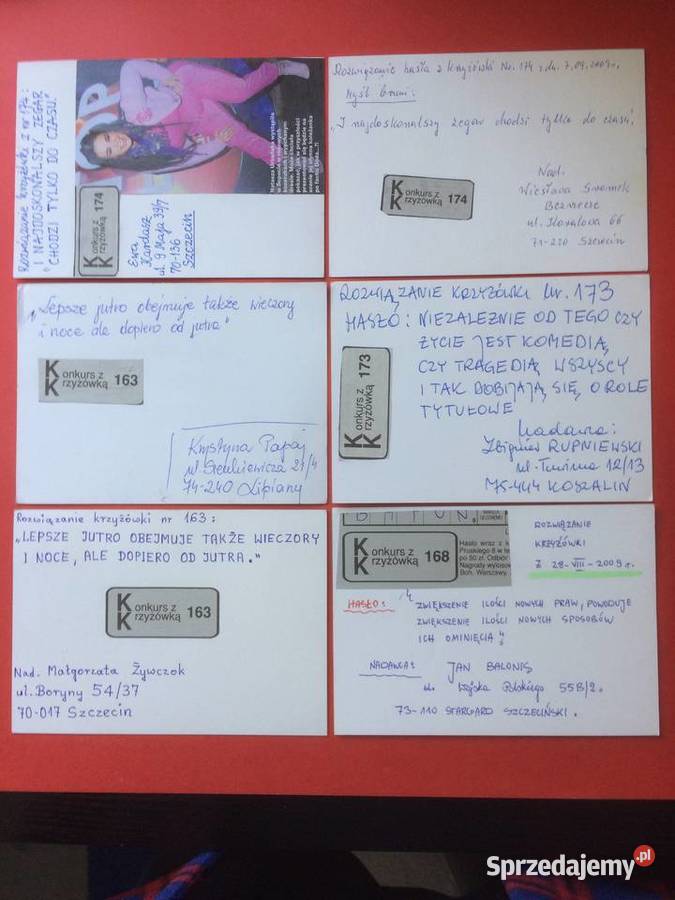 Rozwiązanie krzyżówki z nr 174:
I NAJDOSKONALSZY ZEGAR
"CHODZI TYLKO DO CZASU."
OP
Konkurs z
Krzyżówką 174
Ewa
Kardasz
ul. 9 Maja 39/7
70-136
Szczecin
Rozwiązanie hasła z krzyżówki Nr. 174 z dn. 7.09.2009r.
Myśl brzmi:
„I najdoskonalszy zegar chodzi tylko do czasu".
Konkurs z
Krzyżówką 174
Nad.
Wiesława
Bezrzecze
ul. Koralowa 66
71-220 Szczecin
„Lepsze jutro obejmuje także wieczory
i noce ale dopiero od jutra"
Konkurs z
Krzyżówką 163
Krystyna Papaj
ul. Sienkiewicza 21/4
74-240 Lipiany
ROZWIĄZANIE KRZYŻÓWKI Nr. 173
HASŁO: NIEZALEŻNIE OD TEGO CZY
ŻYCIE JEST KOMEDIĄ,
CZY TRAGEDIĄ, WSZYSCY
I TAK DOBIJAJĄ SIĘ O ROLE
TYTUŁOWE
Konkurs z
Krzyżówką 173
Nadawca:
Zbigniew RUPNIEWSKI
ul. Tuwima 12/13
75-444 KOSZALIN
Rozwiązanie krzyżówki nr 163:
„LEPSZE JUTRO OBEJMUJE TAKŻE WIECZORY
I NOCE, ALE DOPIERO OD JUTRA."
Konkurs z
Krzyżówką 163
Nad. Małgorzata Żywczok
ul. Boryny 54/37
70-017 Szczecin
Konkurs z
Krzyżówką 168
Hasło wraz z k
Pruskiego 8 w te
po 50 zł. Odbiór
Nagrody wyloso
Boh. Warszawy
ROZWIĄZANIE
KRZYŻÓWKI
Z 28-VIII-2009r.
HASŁO: „ZWIĘKSZENIE ILOŚCI NOWYCH PRAW, POWODUJE
ZWIĘKSZENIE ILOŚCI NOWYCH SPOSOBÓW
ICH OMINIĘCIA"
NADAWCA: JAN BALONIS
ul. Wojska Polskiego 55B/2.
73-110 STARGARD SZCZECIŃSKI.
Sprzedajemy.pl